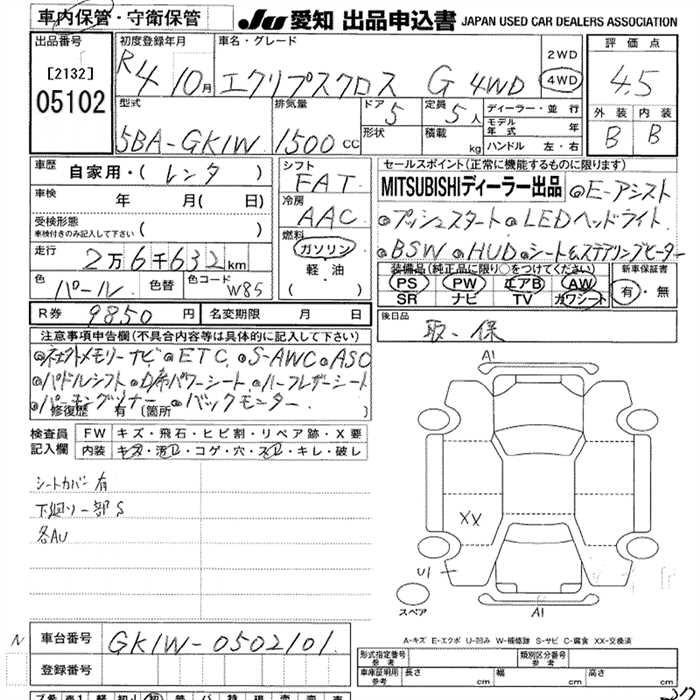 車内保管・守衛保管
JU 愛知 出品申込書 JAPAN USED CAR DEALERS ASSOCIATION
出品番号 初度登録年月 車名・グレード 2WD 評価点
[2132] R4 10月 エクリプスクロス G 4WD 4WD 4.5
05102
型式 排気量 ドア 定員 ディーラー・並行 外装 内装
5BA-GK1W 1500CC 5 5人 モデル年式 年 B B
形状 積載 kg ハンドル 左・右
車歴 自家用・(レンタ) シフト FAT セールスポイント(正常に機能するものに限ります)
車検 年 月( 日) 冷房 AAC MITSUBISHIディーラー出品 ◎E-アシスト
受検形態 車検付きのみ記入して下さい ( ) 燃料 ガソリン ◎プッシュスタート◎LEDヘッドライト
走行 2万6千632km 軽油 ◎BSW◎HUD◎シート&ステアリングヒーター
色 パール 色替 色コード W85 ( ) 装備品(純正品に限り○をつけてください) 新車保証書
PS PW エアB AW 有・無
SR ナビ TV カワシート
R券 9850円 名変期限 月 日 後日品 取、保
注意事項申告欄(不具合内容等は具体的に記入して下さい)
◎社外メモリーナビ◎ETC◎S-AWC◎ASC
◎パドルシフト◎D席パワーシート◎ハーフレザーシート
◎パーキングソナー◎バックモニター
修復歴 有 [箇所 ]
検査員記入欄 FW キズ・飛石・ヒビ割・リペア跡・X要
内装 キズ・汚レ・コゲ・穴・スレ・キレ・破レ
シートカバー有
下廻り一部S
各AU
A1
XX
U1
スペア
A1
A-キズ E-エクボ U-凹み W-補修跡 S-サビ C-腐食 XX-交換済
N 車台番号 GK1W-0502101
登録番号
形式指定番号 参考 類別区分番号 参考
車庫証明用参考 長さ cm 幅 cm 高さ cm